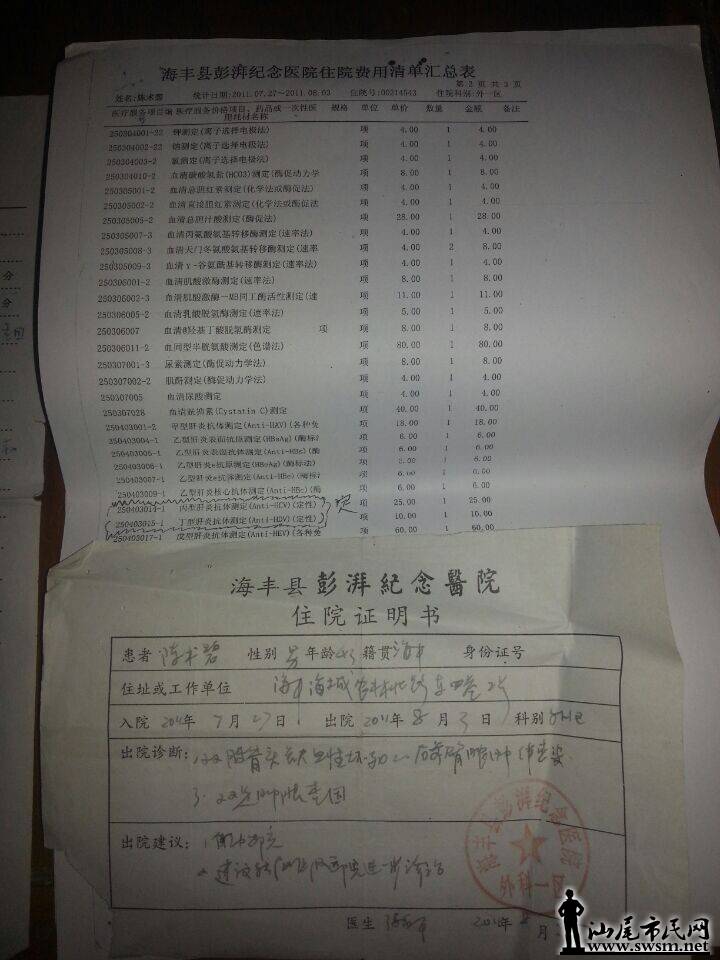 海丰县彭湃纪念医院住院费用清单汇总表
第 2 页 共 3 页
姓名:陈术碧 统计日期:2011.07.27~2011.08.03 住院号:00214543 住院科别:外一区
医疗服务项目编号 医疗服务价格项目、药品或一次性医用耗材名称 规格 单位 单价 数量 金额 备注
250304001-22 钾测定(离子选择电极法) 项 4.00 1 4.00
250304002-22 钠测定(离子选择电极法) 项 4.00 1 4.00
250304003-2 氯测定(离子选择电极法) 项 4.00 1 4.00
250304010-2 血清碳酸氢盐(HCO3)测定(酶促动力学 项 8.00 1 8.00
250305001-2 血清总胆红素测定(化学法或酶促法) 项 4.00 1 4.00
250305002-2 血清直接胆红素测定(化学法或酶促法 项 4.00 1 4.00
250305005-2 血清总胆汁酸测定(酶促法) 项 28.00 1 28.00
250305007-3 血清丙氨酸氨基转移酶测定(速率法) 项 4.00 1 4.00
250305008-3 血清天门冬氨酸氨基转移酶测定(速率 项 4.00 2 8.00
250305009-3 血清γ-谷氨酰基转移酶测定(速率法) 项 4.00 1 4.00
250306001-2 血清肌酸激酶测定(速率法) 项 8.00 1 8.00
250306002-3 血清肌酸激酶-MB同工酶活性测定(速 项 11.00 1 11.00
250306005-2 血清乳酸脱氢酶测定(速率法) 项 5.00 1 5.00
250306007 血清α羟基丁酸脱氢酶测定 项 项 8.00 1 8.00
250306011-2 血同型半胱氨酸测定(色谱法) 项 80.00 1 80.00
250307001-3 尿素测定(酶促动力学法) 项 8.00 1 8.00
250307002-2 肌酐测定(酶促动力学法) 项 4.00 1 4.00
250307005 血清尿酸测定 项 4.00 1 4.00
250307028 血清胱抑素(Cystatin C)测定 项 40.00 1 40.00
250403001-2 甲型肝炎抗体测定(Anti-HAV)(各种免 项 18.00 1 18.00
250403004-1 乙型肝炎表面抗原测定(HBsAg)(酶标法 项 6.00 1 6.00
250403005-1 乙型肝炎表面抗体测定(Anti-HBs)(酶 项 6.00 1 6.00
250403006-1 乙型肝炎e抗原测定(HBeAg)(酶标法) 项 6.00 1 6.00
250403007-1 乙型肝炎e抗体测定(Anti-HBe)(酶标法 项 6.00 1 6.00
250403009-1 乙型肝炎核心抗体测定(Anti-HBc)(酶 项 6.00 1 6.00
250403014-1 丙型肝炎抗体测定(Anti-HCV)(定性) 项 25.00 1 25.00
250403015-1 丁型肝炎抗体测定(Anti-HDV)(定性) 项 10.00 1 10.00
250403017-1 戊型肝炎抗体测定(Anti-HEV)(各种免 项 60.00 1 60.00
海丰县彭湃紀念醫院
住院证明书
患者 陈术碧 性别 男 年龄 43 籍贯 海丰 身份证号
住址或工作单位 海丰海城
入院 2011年 7月 27日 出院 2011年 8月 3日 科别
出院诊断: 1.双股骨头缺血性坏死
出院建议:
医生 2011年 8月
海丰县彭湃纪念医院
外科一区
汕尾市民网
www.swsm.net